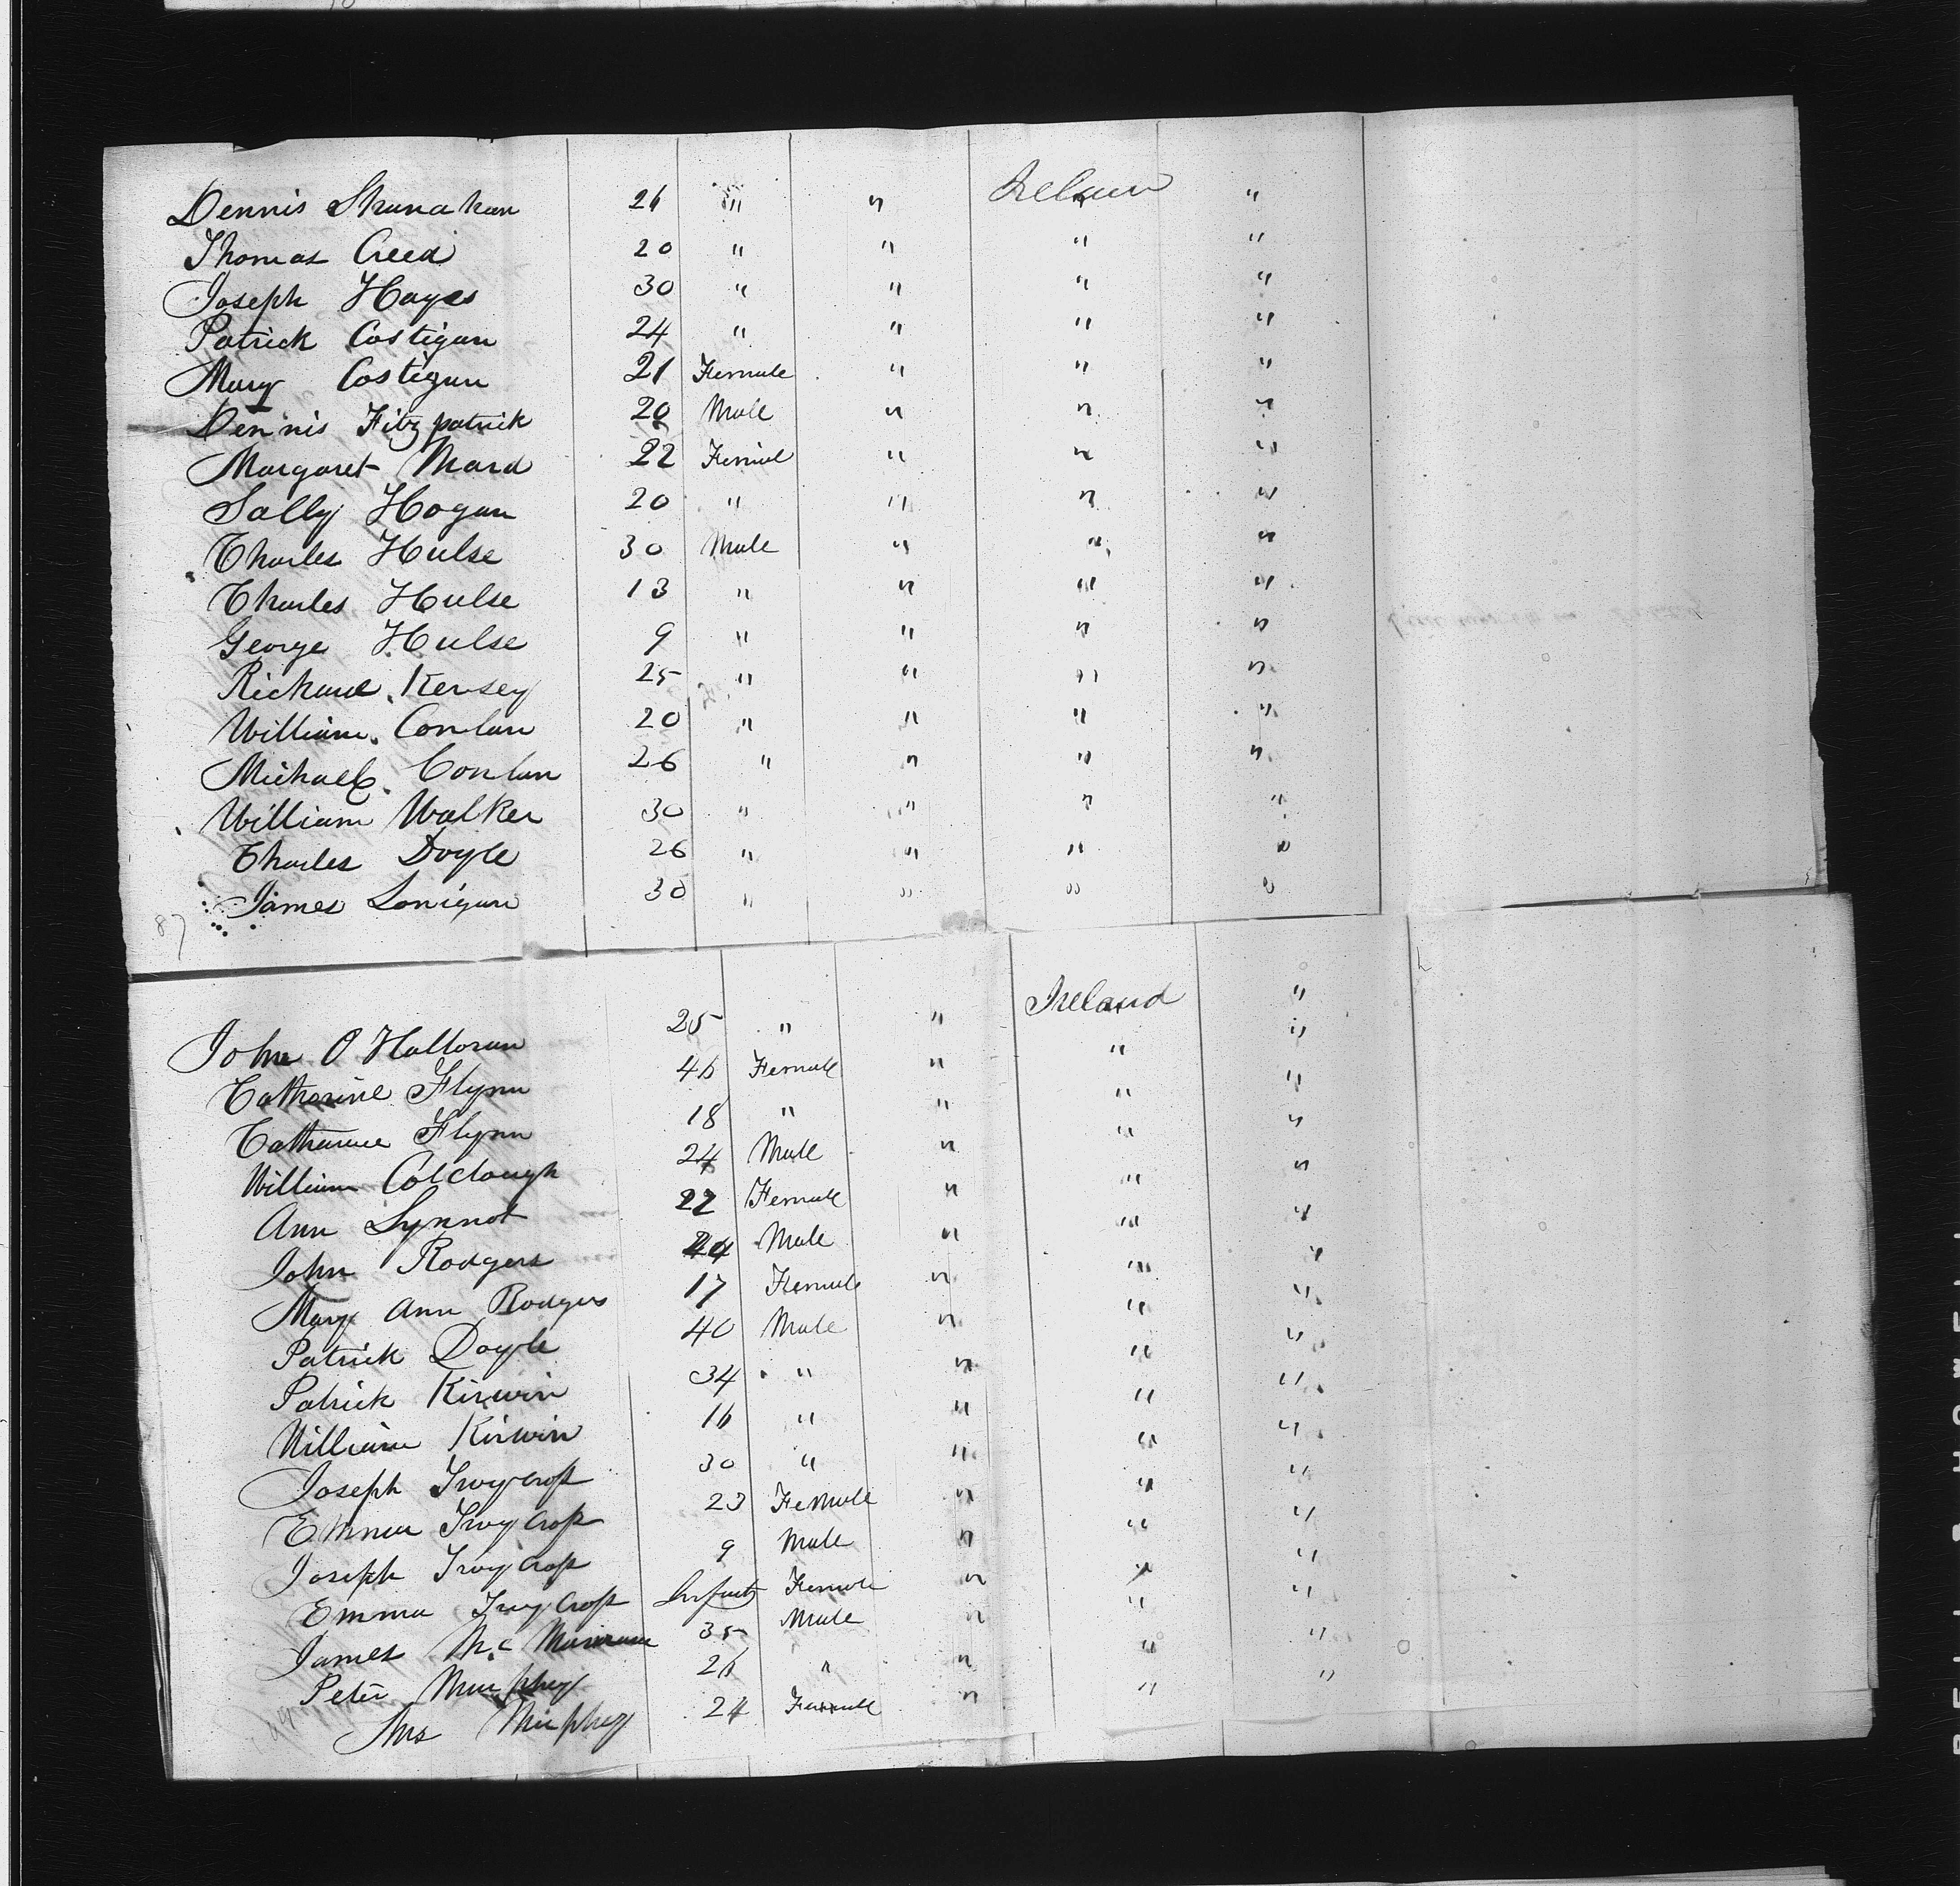 Dennis Shanahan 26 " " Ireland "
Thomas Creed 20 " " " "
Joseph Hayes 30 " " " "
Patrick Costigan 24 " " " "
Mary Costigan 21 Female " " "
Dennis Fitzpatrick 20 Male " " "
Margaret Mard 22 Femal " " "
Sally Hogan 20 " " " "
Charles Hulse 30 Male " " "
Charles Hulse 13 " " " "
George Hulse 9 " " " "
Richard Kersey 25 " " " "
William Conlan 20 " " " "
Michael Conlan 26 " " " "
William Walker 30 " " " "
Charles Doyle 26 " " " "
James Lonigan 30 " " " "
87
John O Halloran 25 " " Ireland "
Catherine Flynn 46 Female " " "
Catharine Flynn 18 " " " "
William Colclough 24 Male " " "
Ann Synnot 22 Female " " "
John Rodgers 44 Male " " "
Mary Ann Rodgers 17 Female " " "
Patrick Doyle 40 Male " " "
Patrick Kirwin 34 " " " "
William Kirwin 16 " " " "
Joseph Twycross 30 " " " "
Emma Twycross 23 Female " " "
Joseph Twycross 9 Male " " "
Emma Twycross Infant Female " " "
James Mc 35 Male " " "
Peter Murphey 26 " " " "
Mrs Murphey 24 Female " " "